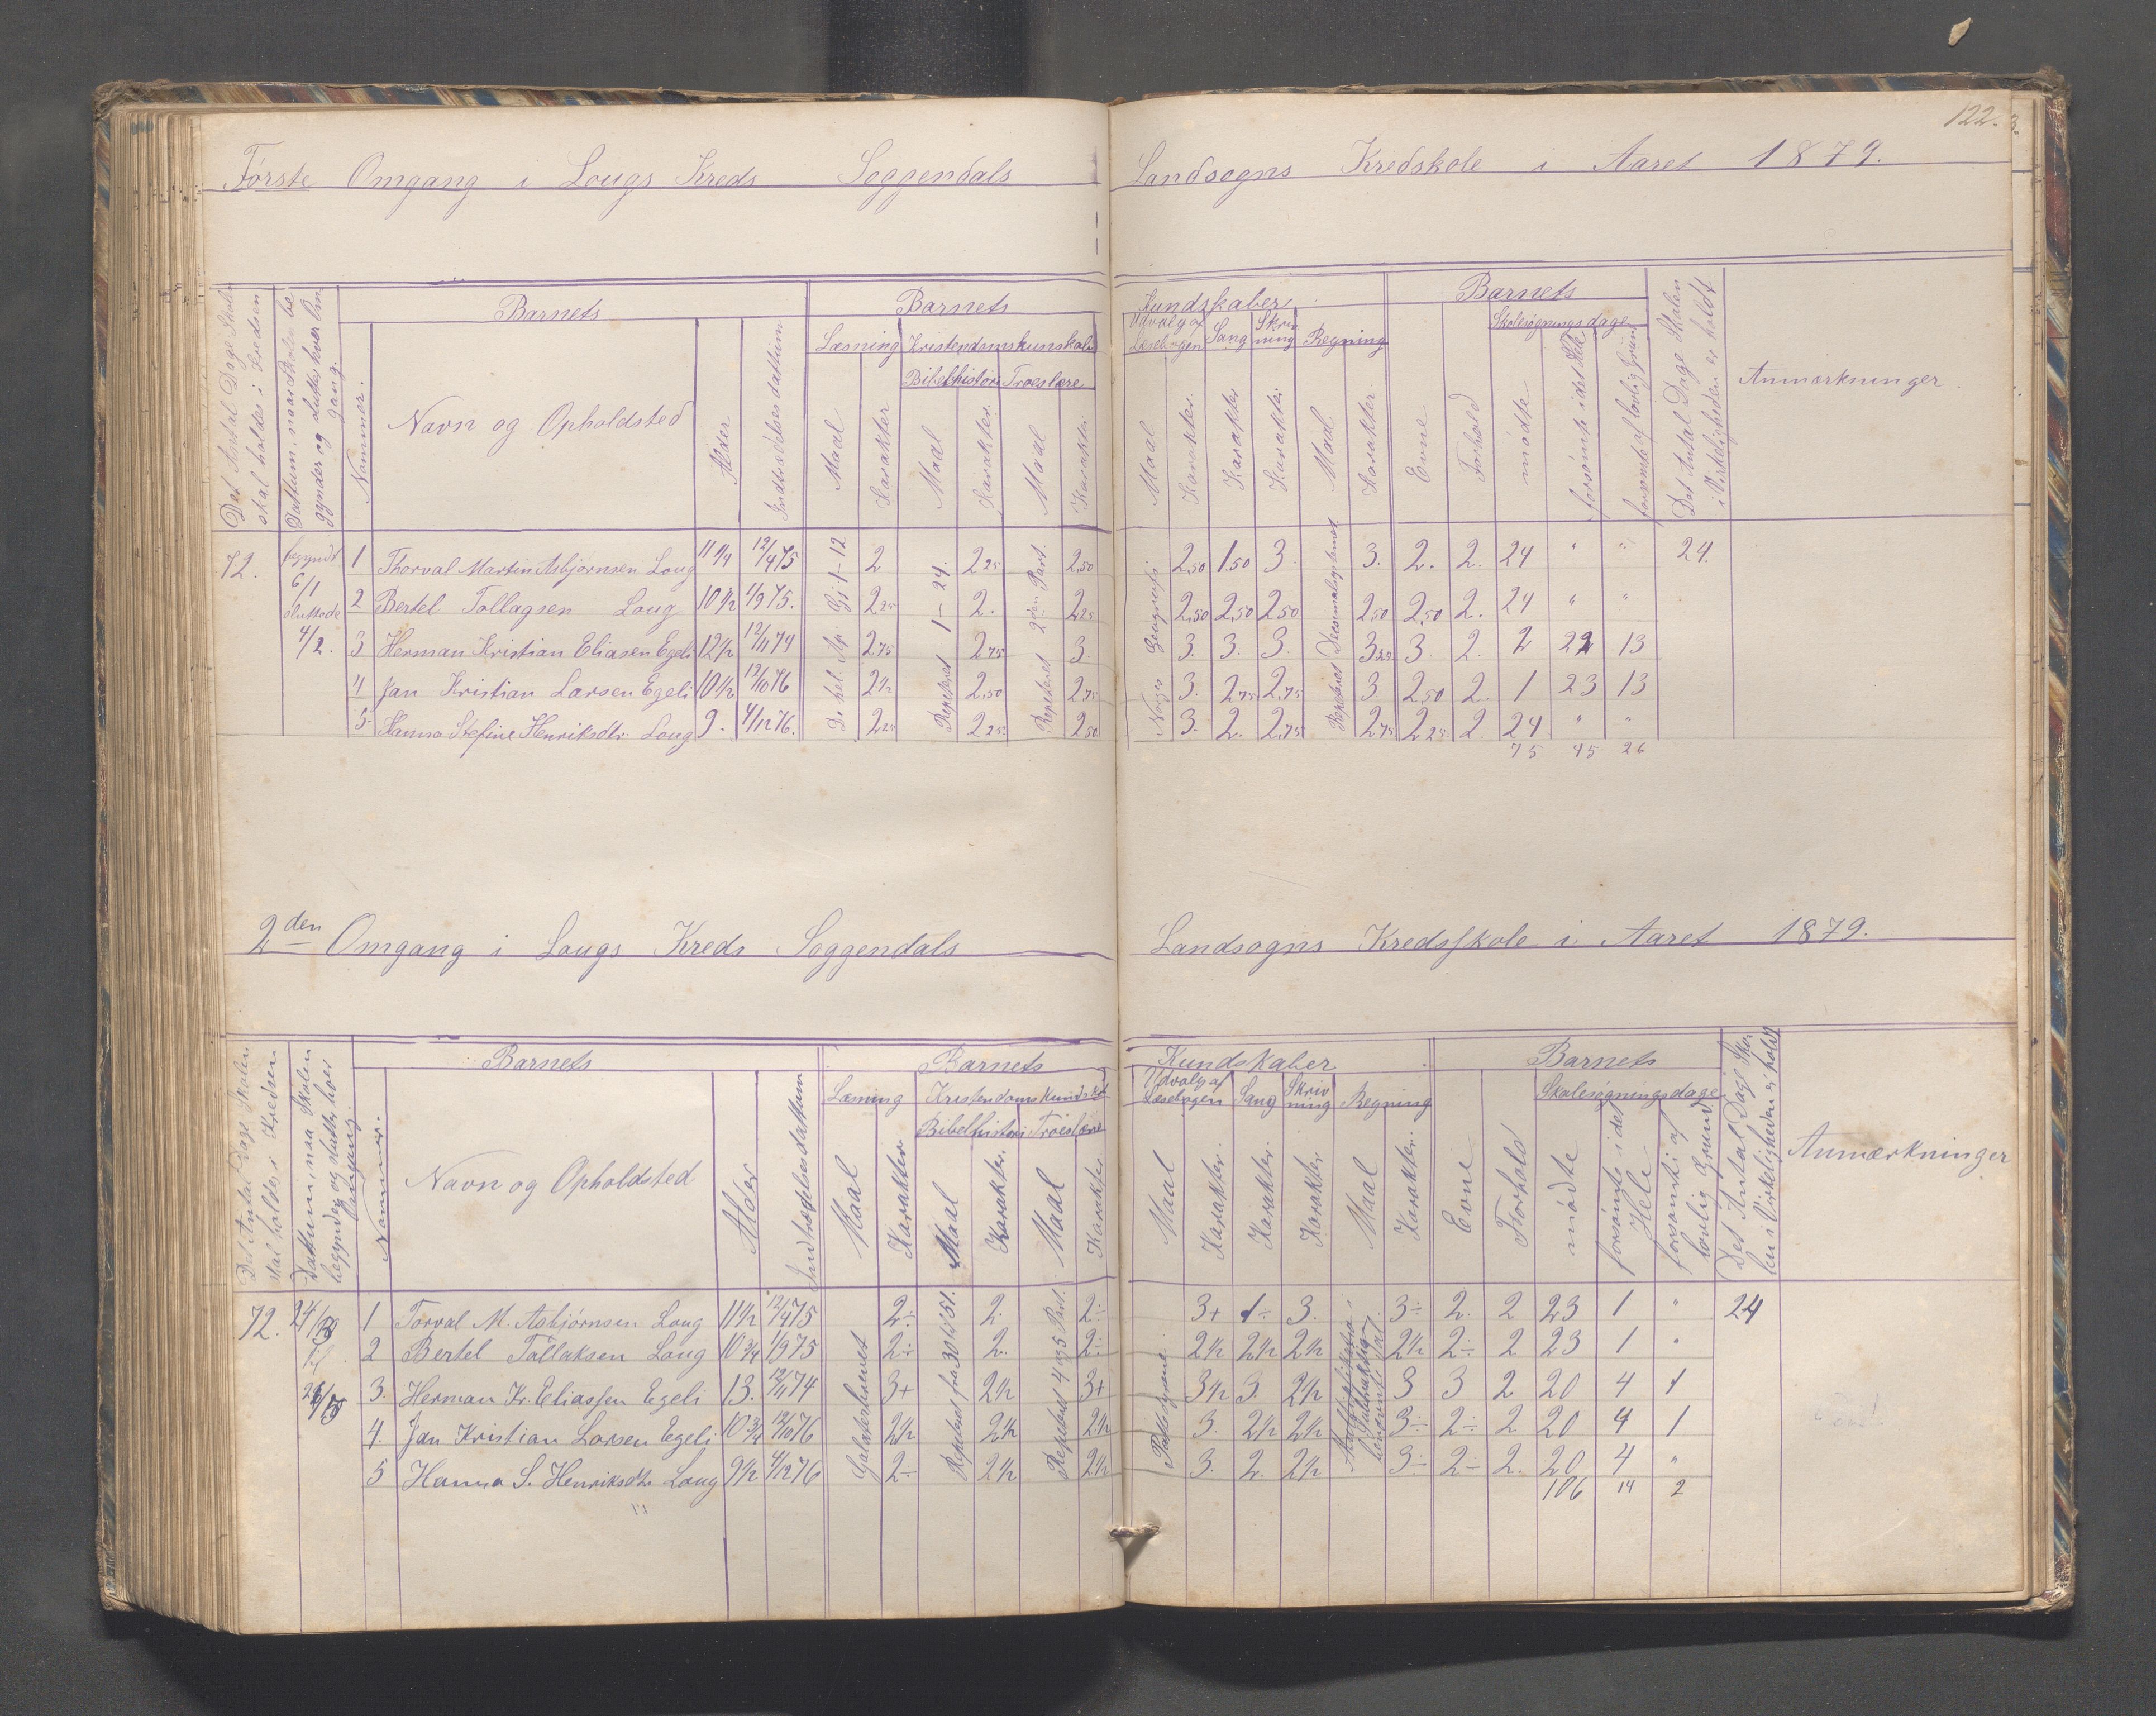 122.
Første Omgang i Lougs Kreds Soggendals Landsogns Kredskole i Aaret 1879.
Det Antal Dage Skolen skal holdes i Kredsen
Dattum, naar Skolen begynder og slutter hver Omgang.
Nommer.
Barnets
Navn og Opholdsted
Alder
Indtrædelsesdattum
Barnets Kundskaber
Læsning
Maal
Karakter
Kristendomskunskab
Bibelhistorie
Maal
Karakter
Troeslære
Maal
Karakter
Udvalg af Læsebogen
Maal
Karakter.
Sang
Karakter
Skrivning
Karakter
Regning
Maal.
Karakter
Barnets
Evne
Forhold
Skolesøgningsdage
mødte
forsømte i det Hele
forsømte af lovlig Grund
Det Antal Dage Skolen i Virkeligheden er holdt
Anmærkninger.
72. begyndt 6/1 sluttede 4/2.
1 Thorval Martin Asbjørnsen Loug 11 1/4 12/4 75 2 2.25 2,50 2,50 1.50 3. 3. 2. 2. 24 " " 24.
2 Bertel Tollagsen Loug 10 1/2 1/9 75. 2.25 2. 2.25 2.50 2,50 2.50 2.50 2,50 2. 24 " "
3 Herman Kristian Eliasen Egeli 12 1/2 12/11 74 2.75 2.75 3. 3. 3. 3. 3.25 3. 2. 2 22 13
4 Jan Kristian Larsen Egeli 10 1/2 12/10 76 2 1/2 2,50 2,75 3. 2,75 2,75 3. 2,50 2. 1 23 13
5 Hanna Stefine Henriksdtr. Loug 9. 4/12 76. 2.25 2.25 2.50 3. 2. 2,75 2.75 2.25 2. 24 " "
75 45 26
1-24. Repeteret
Repeteret 2den Part.
Norges Geografi
2den Omgang i Lougs Kreds Soggendals Landsogns Kredsskole i Aaret 1879.
Det Antal Dage Skolen skal holdes i Kredsen
Nommer.
Barnets
Navn og Opholdsted
Alder
Indtrædelsesdattum
Barnets Kundskaber
Læsning
Maal
Karakter
Kristendomskundskab
Bibelhistorie
Maal
Karakter.
Troeslære
Maal
Karakter
Udvalg af Læsebogen
Maal
Karakter.
Sang
Karakter
Skrivning
Karakter
Regning
Maal
Karakter.
Barnets
Evne
Forhold
Skolesøgningsdage
mødte
forsømte i det Hele
forsømte af lovlig Grund
Det Antal Dage Skolen i Virkeligheden er holdt
Anmærkninger
72.
1 Torval M. Asbjørnsen Loug 11 1/2 12/4 75 2÷ 2. 2÷ 3+ 1÷ 3. 3÷ 2. 2 23 1 " 24
2 Bertel Tollaksen Loug 10 3/4 1/9 75 2÷ 2. 2÷ 2 1/2 2 1/2 2 1/2 2 1/2 2÷ 2 23 1 "
3. Herman Kr. Eliassen Egeli 13. 12/11 74 3+ 2 1/2 3+ 3 1/2 3. 2 1/2 3 3 2 20 4 1
4. Jan Kristian Larsen Egeli 10 3/4 12/10 76 2 1/2 2 1/2 2 1/2 3. 2 1/2 2 1/2 3÷ 2÷ 2 20 4 1
5 Hanna S. Henriksdtr Loug 9 1/2 4/12 76 2÷ 2 1/2 2 1/2 3. 2. 2 1/2 3÷ 2÷ 2. 20 4 "
106 14 2
Galaterbrevet
Repeteret fra 30 til 51.
Repeteret 4 og 5 Part.